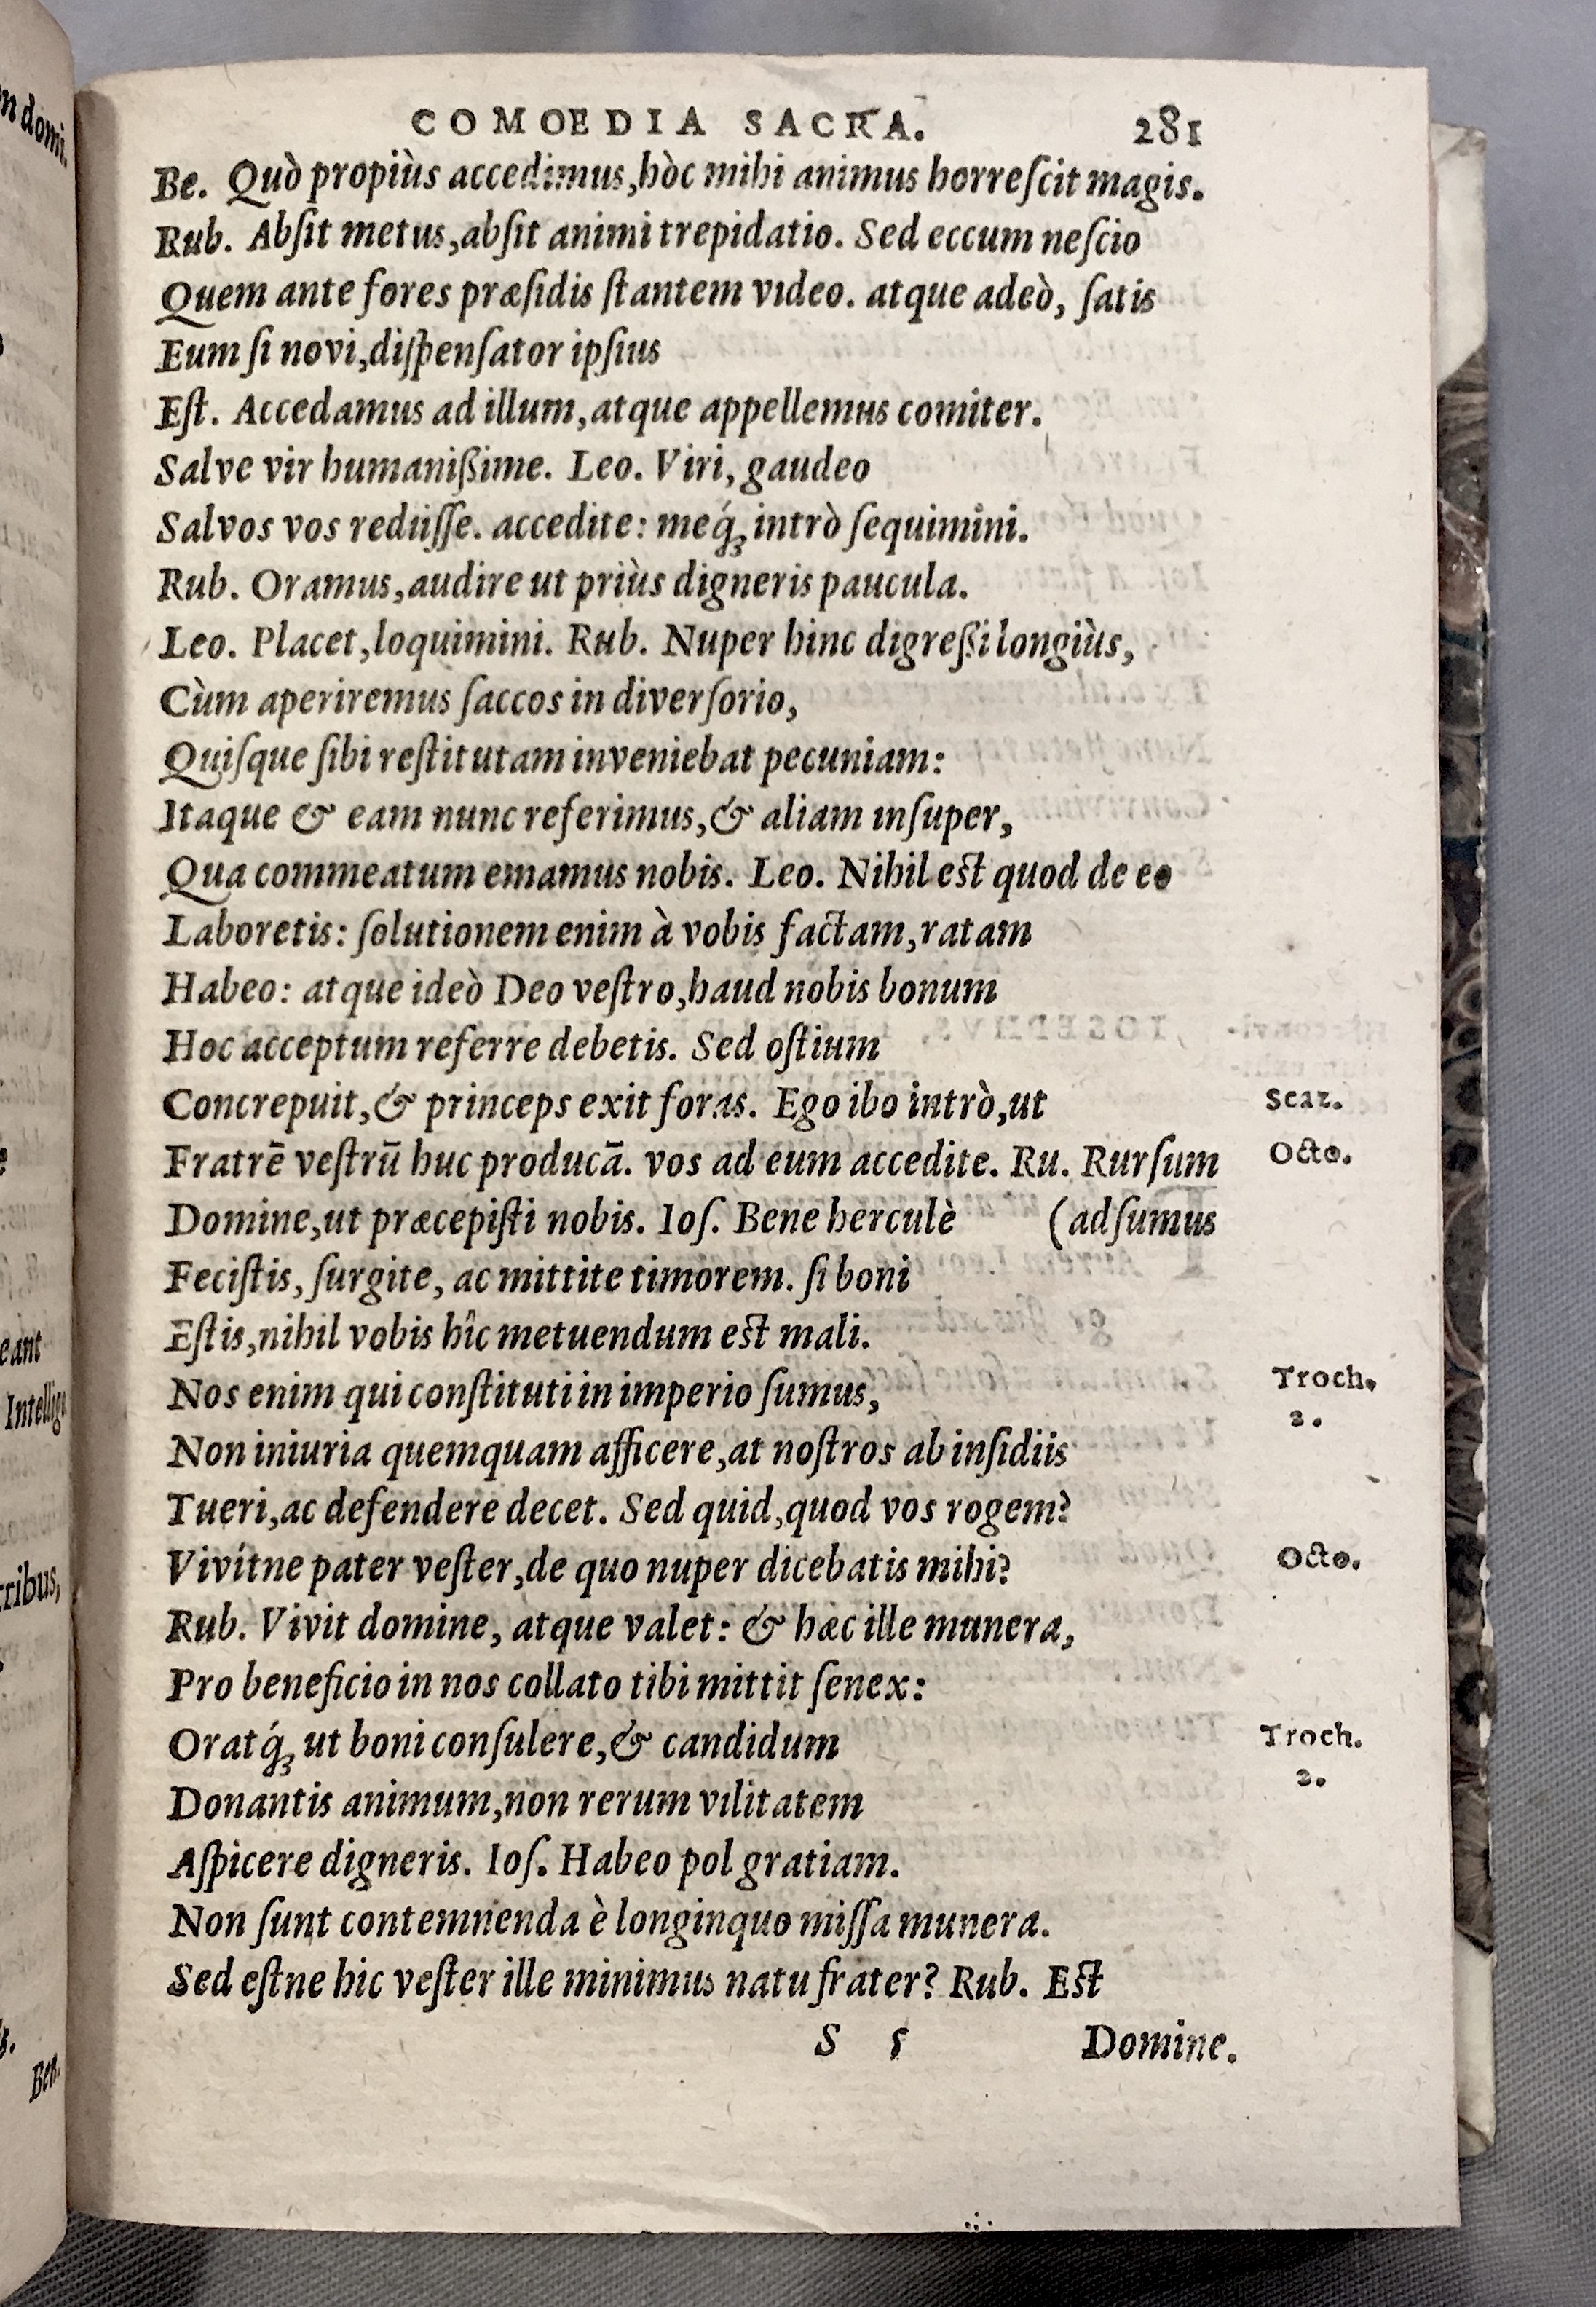 COMOEDIA SACRA. 281
Be. Quò propiùs accedimus,hòc mihi animus horreſcit magis.
Rub. Abſit metus,abſit animi trepidatio. Sed eccum neſcio
Quem ante fores præſidis ſtantem video. atque adeò, ſatis
Eum ſi novi,diſpenſator ipſius
Eſt. Accedamus ad illum,atque appellemus comiter.
Salve vir humanißime. Leo. Viri, gaudeo
Salvos vos rediiſſe. accedite: meq́; intrò ſequimini.
Rub. Oramus,audire ut priùs digneris paucula.
Leo. Placet,loquimini. Rub. Nuper hinc digreßi longiùs,
Cùm aperiremus ſaccos in diverſorio,
Quiſque ſibi reſtitutam inveniebat pecuniam:
Itaque & eam nunc referimus,& aliam inſuper,
Qua commeatum emamus nobis. Leo. Nihil eſt quod de eo
Laboretis: ſolutionem enim à vobis factam,ratam
Habeo: atque ideò Deo veſtro,haud nobis bonum
Hoc acceptum referre debetis. Sed oſtium
Concrepuit,& princeps exit foras. Ego ibo intrò,ut Scaz.
Fratrē veſtrū huc producā. vos ad eum accedite. Ru. Rurſum Octo.
Domine,ut præcepiſti nobis. Ioſ. Bene herculè (adſumus
Feciſtis, ſurgite, ac mittite timorem. ſi boni
Eſtis,nihil vobis hîc metuendum eſt mali.
Nos enim qui conſtituti in imperio ſumus, Troch.
2.
Non iniuria quemquam afficere,at noſtros ab inſidiis
Tueri,ac defendere decet. Sed quid,quod vos rogem?
Vivítne pater veſter,de quo nuper dicebatis mihi? Octo.
Rub. Vivit domine, atque valet: & hæc ille munera,
Pro beneficio in nos collato tibi mittit ſenex:
Oratq́; ut boni conſulere,& candidum Troch.
2.
Donantis animum,non rerum vilitatem
Aſpicere digneris. Ioſ. Habeo pol gratiam.
Non ſunt contemnenda è longinquo miſſa munera.
Sed eſtne hic veſter ille minimus natu frater? Rub. Eſt
S 5 Domine.